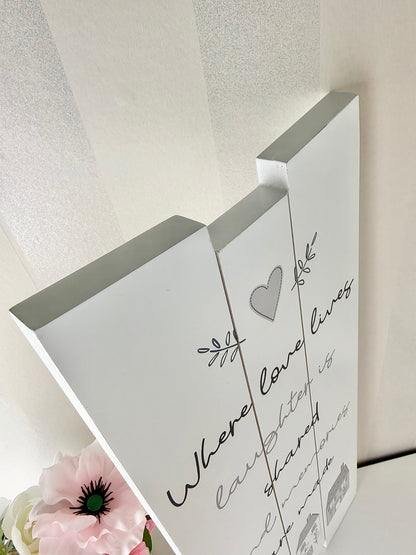 Where love lives
laughter is
shared
and memories
are made